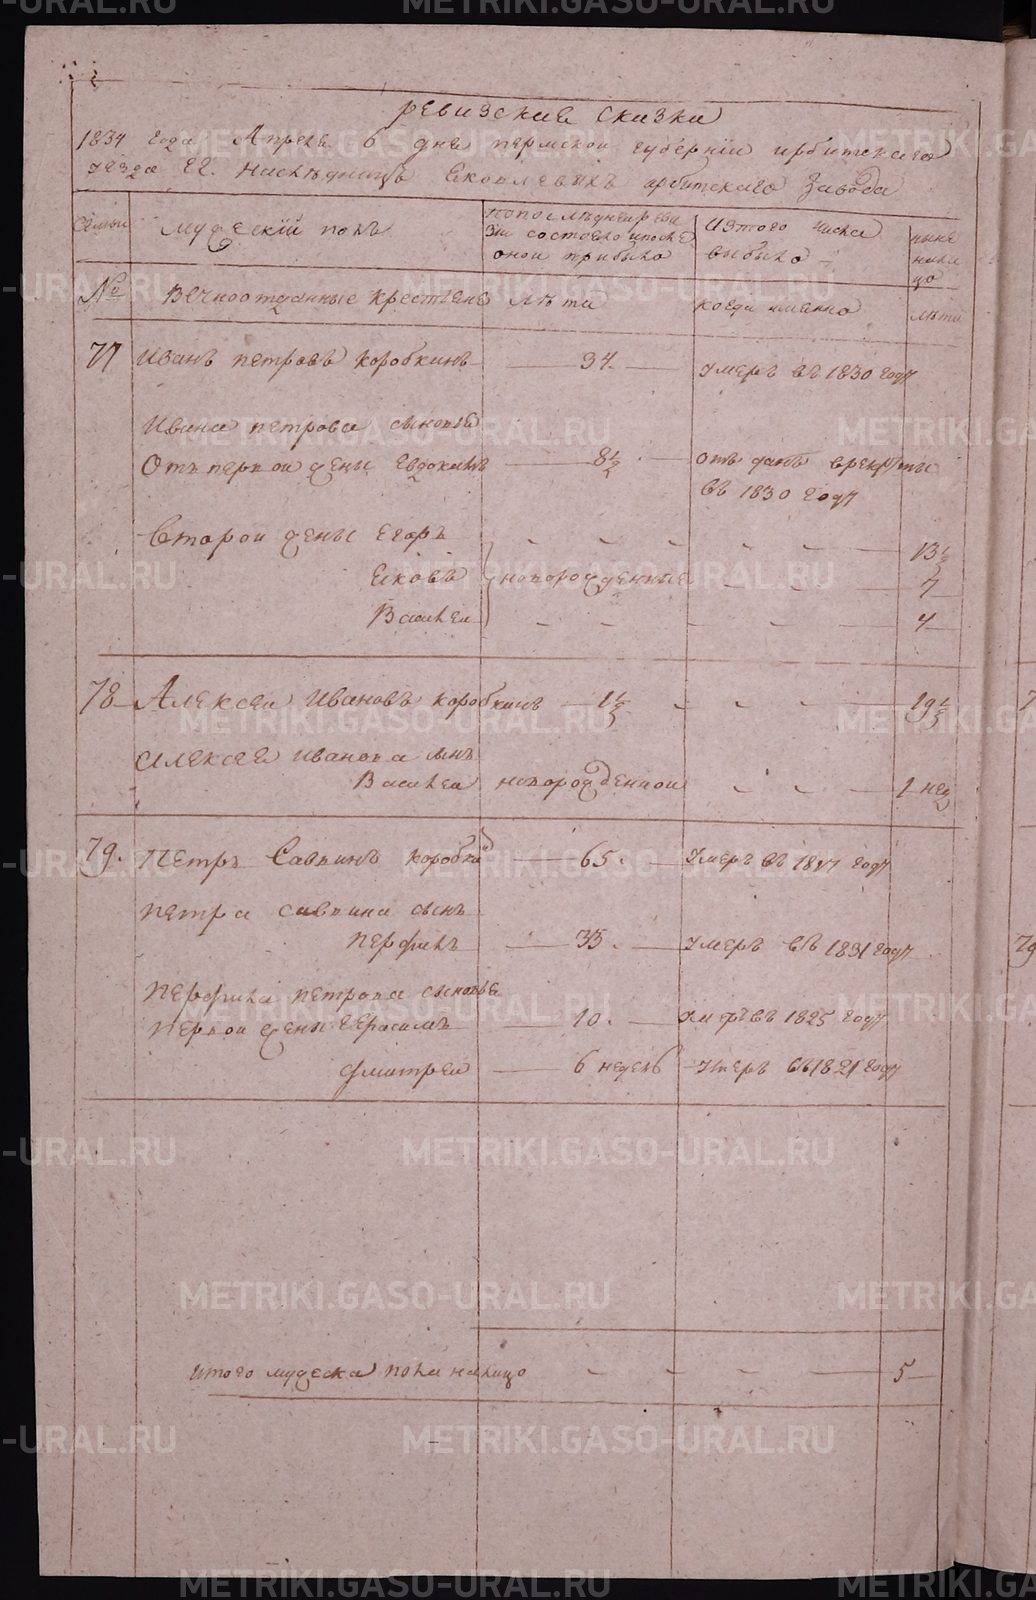 ревизские сказки
1834 года Апреля 6 дня пермской губернии ирбитскаго
уезда ГГ. Наследницъ Яковлевыхъ ирбитскаго завода
семьи
мужеский полъ
по последней реви
зии состояло и после
оной прибыло
Изтого числа
выбыло
ныне
нали
цо
№
Вечноотданные крестьяне
лета
когда имянно
лета
77 Иванъ петровъ коробкинъ 34. умеръ въ 1830 году
Ивана петрова сыновья
Отъ первой жены Евдокимъ 8½ отъ данъ в рекруты
въ 1830 году
Второй жены Егоръ 13½
Яковъ новорожденные 7
Василей 4
78 Алексей Ивановъ коробкинъ 1½ 19½
Алексея Иванова сынъ
Василей новорожденной 1 нед
79. Петръ Саввинъ коробкинъ 65. умеръ въ 1817 году
петра саввина сынъ
перфилъ 35. умеръ въ 1831 году
перфила петрова сыновья
первой жены герасимъ 10. умеръ въ 1825 году
дмитрей 6 недель умеръ въ 1821 году
итого мужеска пола налицо 5
METRIKI.GASO-URAL.RU